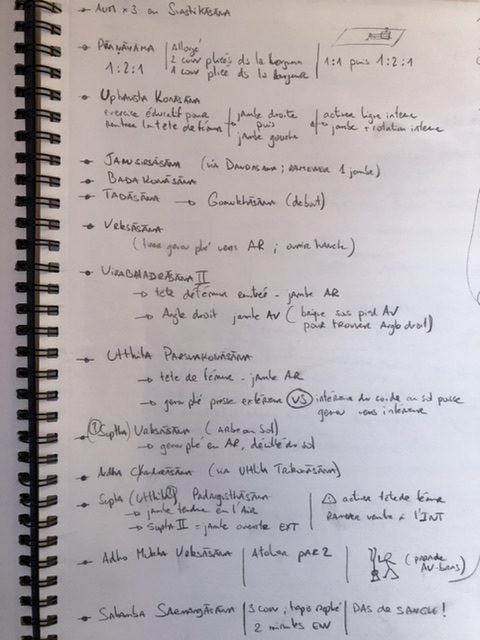 AUM x 3 en SVASTIKĀSANA
PRĀṆĀYAMA | Allongé | 1:1 puis 1:2:1
2 couv pliées ds la longueur
1:2:1 1 couv pliée ds la largeur
UPAVISTA KONĀSANA
exercice éducatif pour jambe droite activer ligne interne
rentrer la tête de fémur puis jambe + rotation interne
jambe gauche
JANUSIRSĀSANA (via DANDASANA ; RAMENER 1 jambe)
BADA KONĀSANA
TADĀSANA → GOMUKHĀSANA (debout)
VRKSĀSANA
(tirer genou plié vers AR ; ouvrir hanche)
VIRABHADRĀSANA II
→ tête de fémur rentrée - jambe AR
→ Angle droit jambe AV (brique sous pied AV
pour trouver Angle droit)
UTTHITA PARSVAKONĀSANA
→ tête de fémur - jambe AR
→ genou plié presse extérieur VS intérieur du coude au sol pousse
genou vers intérieur
① Suptha VRKSĀSANA (ARBRE au Sol)
→ genou plié en AR, décollé du sol
Ardha CHANDRĀSANA (via UTTHITA TRIKONĀSANA)
Supta (Utthita) PADANGUSTHĀSANA | ⚠ activer tête de fémur
→ jambe tendue en l'AIR RAMENER ventre à l'INT
→ Supta II = jambe ouverte EXT
Adho Mukha VRKSĀSANA | Atelier PAR 2 | (prendre
AV-bras)
Salamba SARVANGĀSANA | 3 couv, tapis replié | PAS de SANGLE !
2 minutes ENV